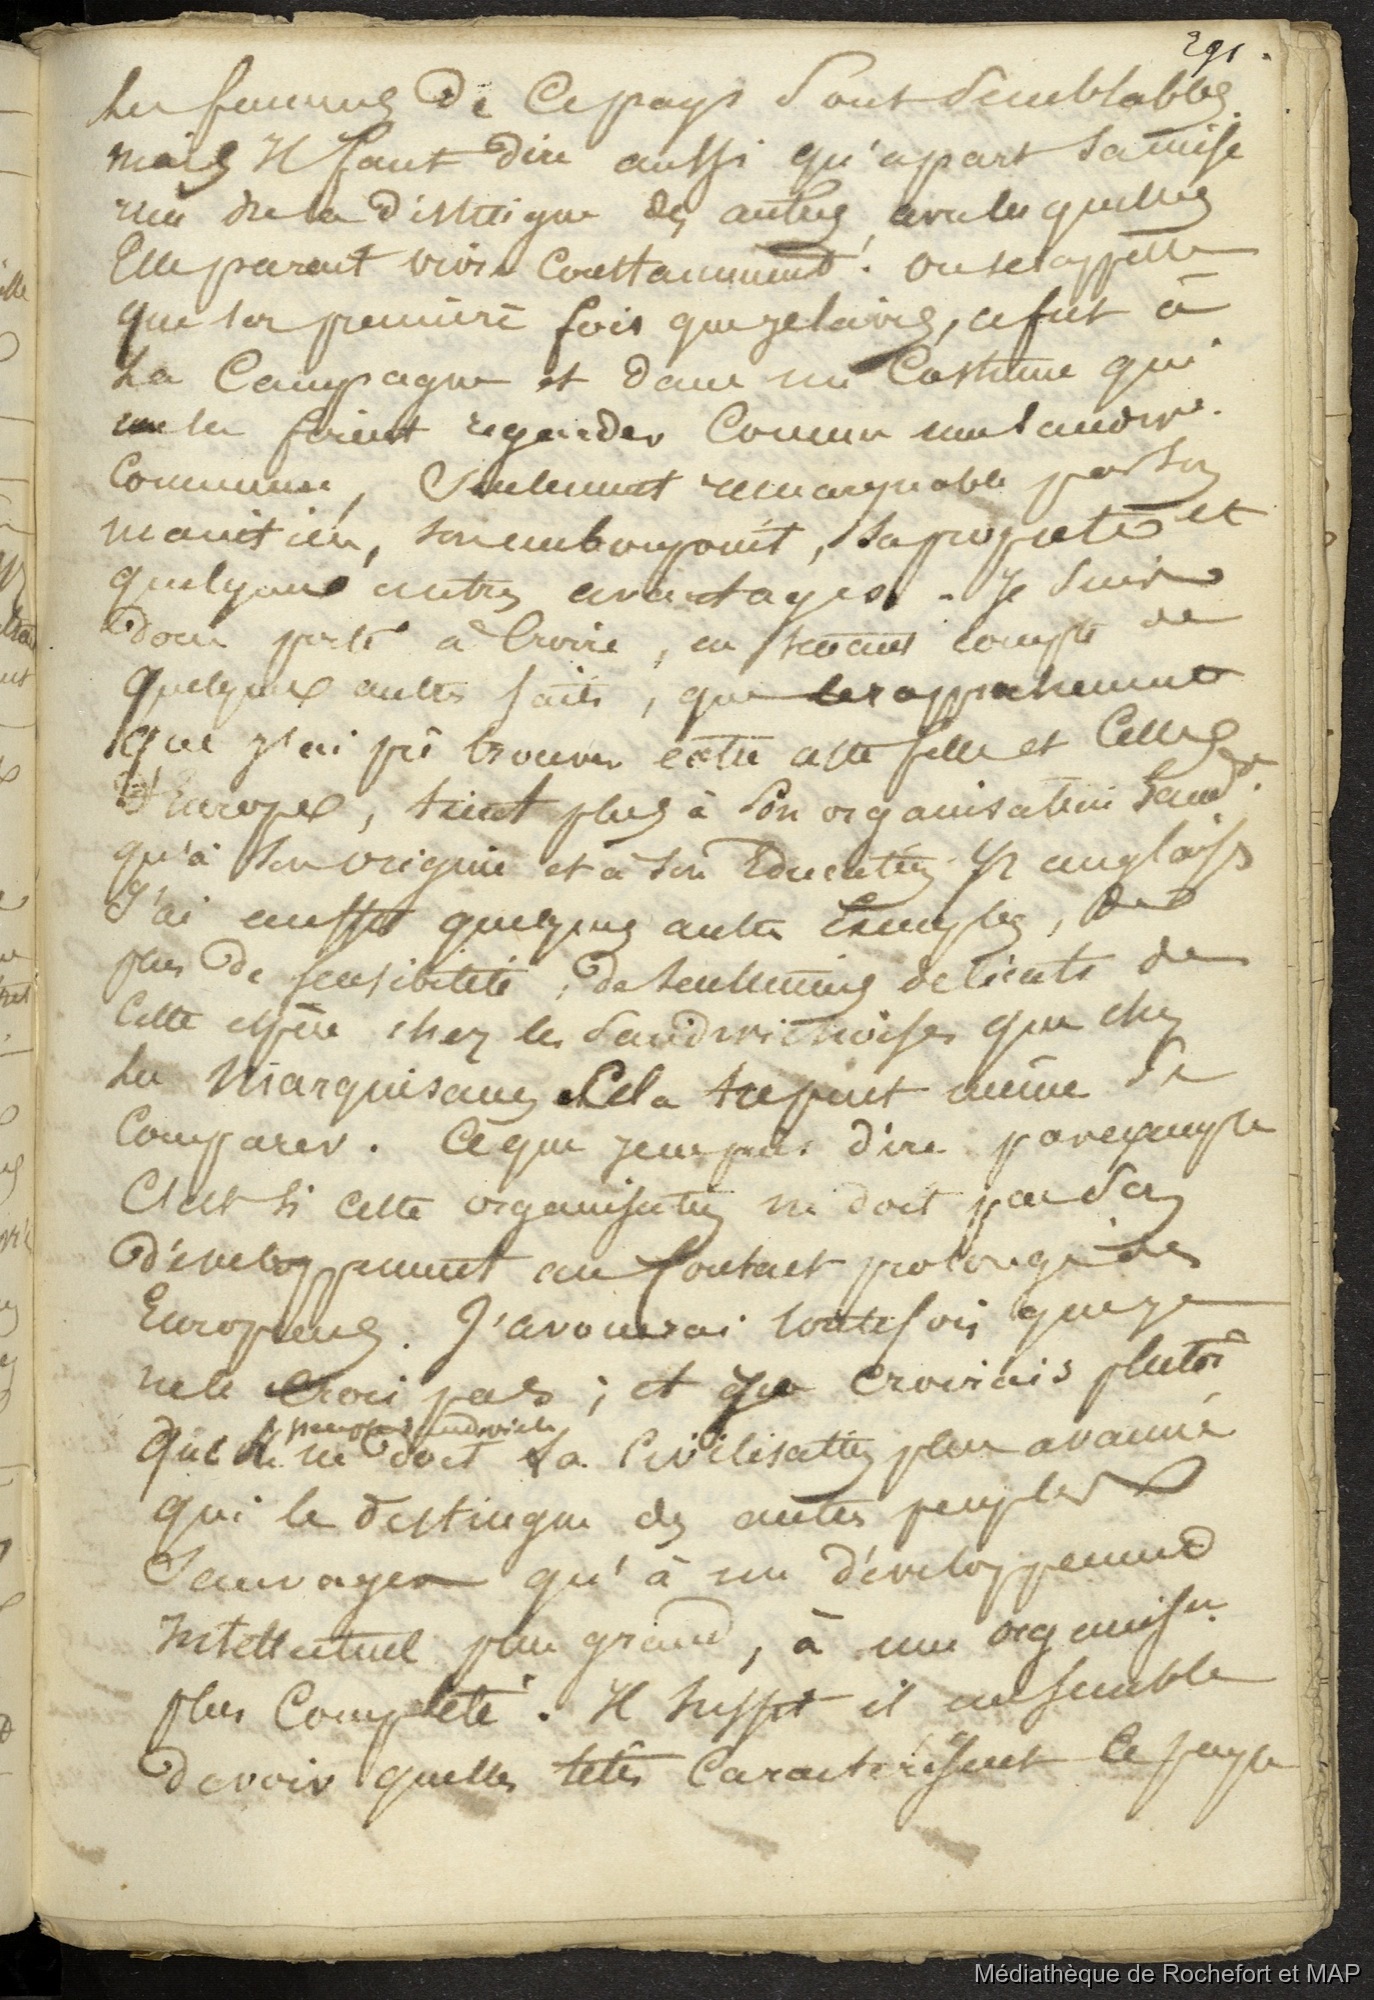 291.
les femmes de ce pays sont semblables.
mais Il faut dire aussi qu'apart sa mise
rien ne la distingue des autres avec lesquelles
Elle parait vivre constamment. on se rappelle
que la première fois que je la vis, ce fut à
La Campagne et dans un Costume qui
me la faisait regarder Comme une Sandw.
Commune, Seulement remarquable par son
maintien, son embonpoint, sa propreté et
quelques autres avantages. Je suis
donc porté à Croire, en tenant compte de
quelques autres faits, que le rapprochement
que j'ai pû trouver entre cette fille et Celles
d'Europe, tient plus à son organisation Sandw.
qu'à son origine et à son Education anglaise
J'ai quelques autres Exemples,
plus de sensibilité, de sentimens delicats de
Cette espèce chez les Sandwichoises que chez
les Marquisanes Cela ne peut même se
Comparer. Ce que je ne puis dire par exemple
C'est si cette organisation ne doit pas son
développement au Contact prolongé des
Européens. J'avouerai toutefois que je
ne le Crois pas ; et je Croirais plutôt
peuple sandwich
que le ne doit sa Civilisation plus avancée
qui le distingue des autres peuples
Sauvages qu'à un développement
Intellectuel plus grand, à une organisn.
plus Complète. Il suffit il me semble
de voir quelles têtes Caractérisent Ce peuple
Médiathèque de Rochefort et MAP